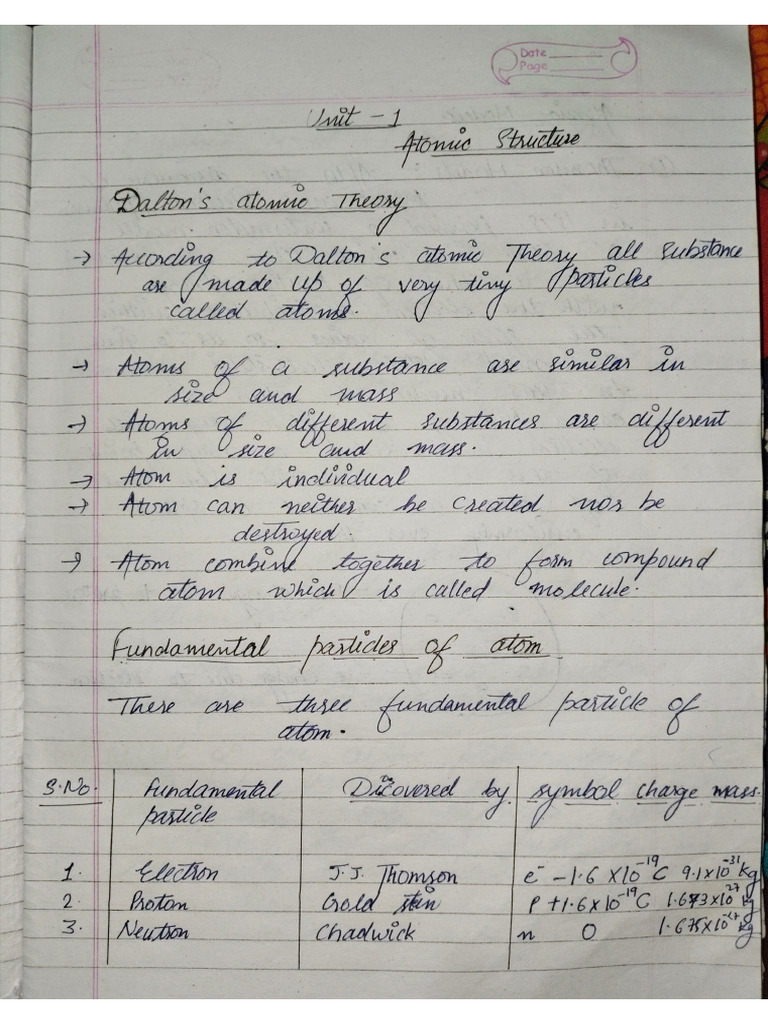 Date
Page
Unit - 1
Atomic Structure
Dalton's atomic Theory
→ According to Dalton's atomic Theory all substance
are made up of very tiny particles
called atoms.
→ Atoms of a substance are similar in
size and mass
→ Atoms of different substances are different
in size and mass.
→ Atom is individual
→ Atom can neither be created nor be
destroyed.
→ Atom combine together to form compound
atom which is called molecule.
Fundamental particles of atom
There are three fundamental particle of
atom.
S.No. Fundamental Discovered by symbol charge mass.
particle
1. Electron J.J. Thomson e⁻ -1.6 X10⁻¹⁹ C 9.1x10⁻³¹ kg
2. Proton Gold stin P +1.6x10⁻¹⁹C 1.673x10⁻²⁷ kg
3. Neutron Chadwick n 0 1.675x10⁻²⁷ kg